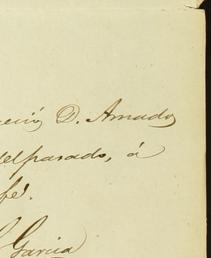 D. Amado
del pasado, á
fé.
Garcia